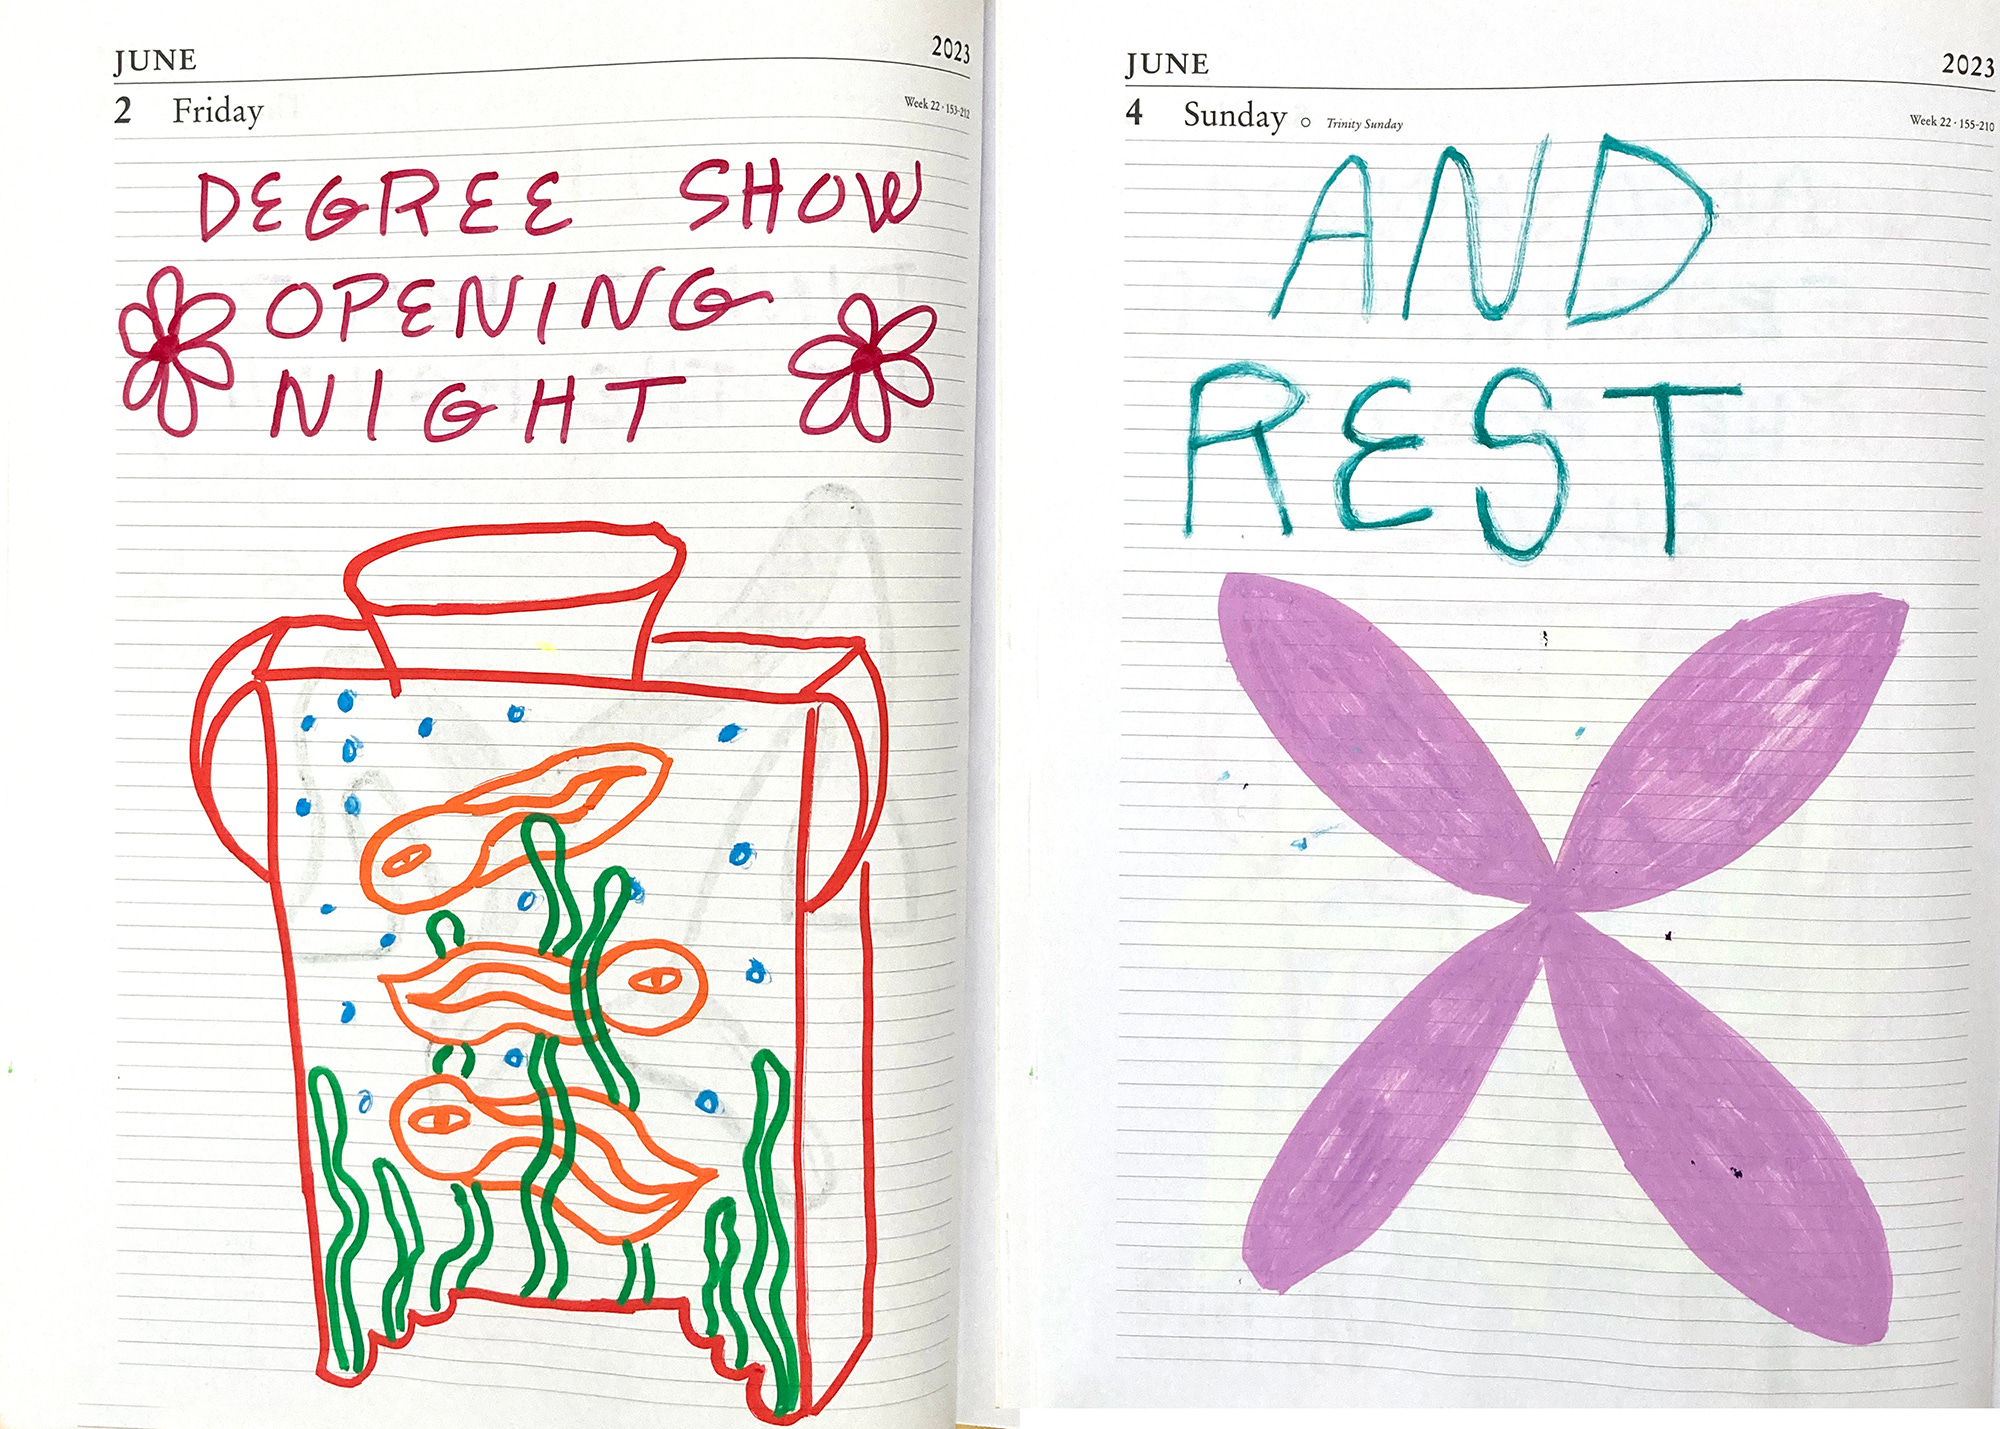 JUNE 2023
2 Friday Week 22 · 153-212
DEGREE SHOW
OPENING
NIGHT
JUNE 2023
4 Sunday ○ Trinity Sunday Week 22 · 155-210
AND
REST